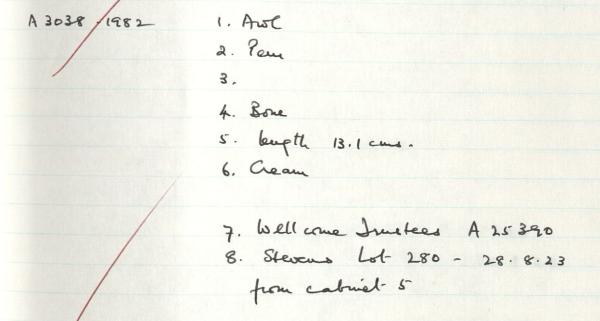 A 3038 . 1982
1. Awl
2. Peru
3.
4. Bone
5. length 13.1 cms.
6. Cream
7. Wellcome Trustees A 25390
8. Stevens Lot 280 - 28.8.23
from cabinet 5